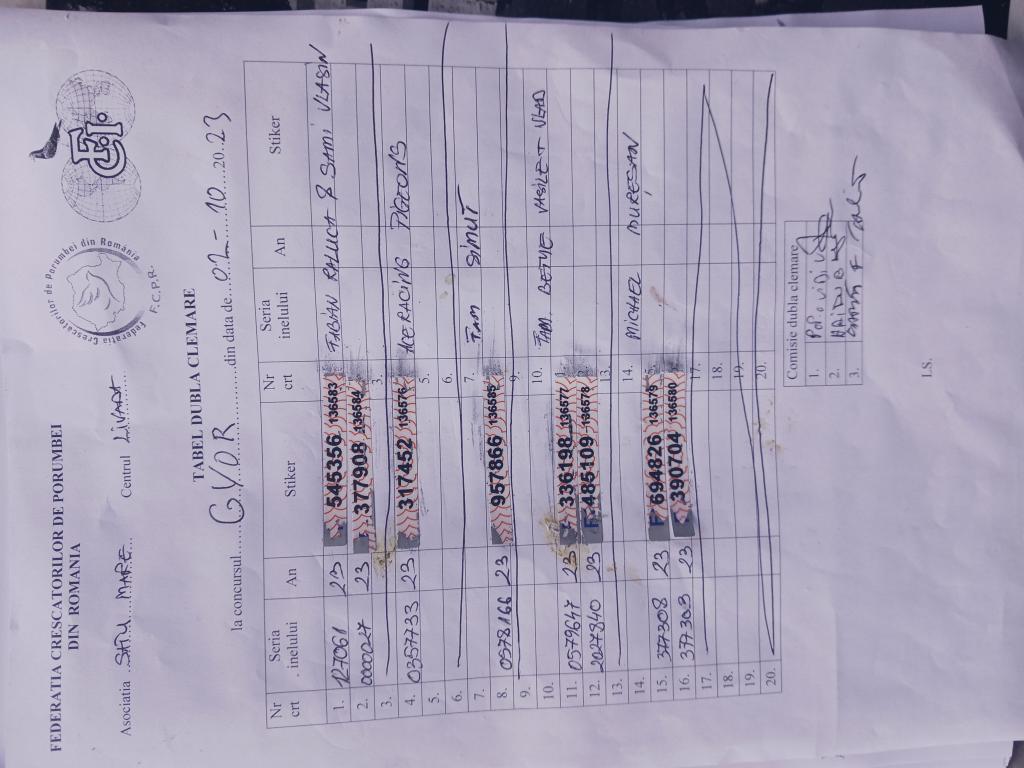 FEDERATIA CRESCATORILOR DE PORUMBEI
DIN ROMANIA
Federatia Crescatorilor de Porumbei din România
F.C.P.R.
F.C.I.
Asociatia ..SATU MARE... Centrul LIVADA
TABEL DUBLA CLEMARE
la concursul......GYOR..........din data de...02-...10....20.23
Nr crt Seria inelului An Stiker Nr crt Seria inelului An Stiker
1. 127061 23 545356 136583 FABIAN RALUCA & SAMI VLASIN
2. 0000247 23 377908 136584
3. 3.
4. 0357733 23 317452 136576 ACERACING PIGEONS
5. 5.
6. 6.
7. 7. FAM SIMUT
8. 0578166 23 957866 136585
9. 9.
10. 10. FAM. BETYE VASILE+VLAD
11. 0579647 23 336198 136577
12. 2027840 23 F 485109 136578
13. 13.
14. 14. MICHAEL MURESAN
15. 377308 23 F 694826 136579
16. 377303 23 390704 136580
17. 17.
18. 18.
19. 19.
20. 20.
Comisie dubla clemare
1. POP OVIDIU
2.
3.
I.S.